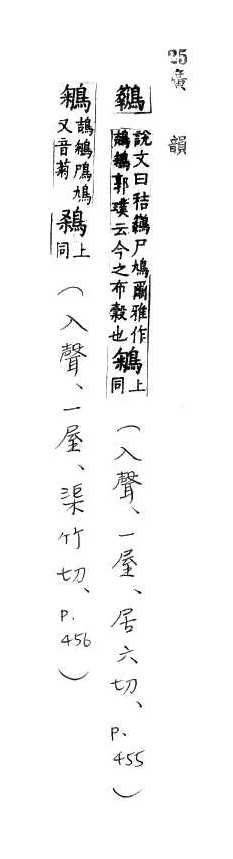 25廣韻
說文曰秸鳲尸鳩爾雅作
鴶鵴郭璞云今之布穀也鵴上同(入聲、一屋、居六切、P.455)
鵴鴶鵴鳲鳩又音菊上同(入聲、一屋、渠竹切、P.456)